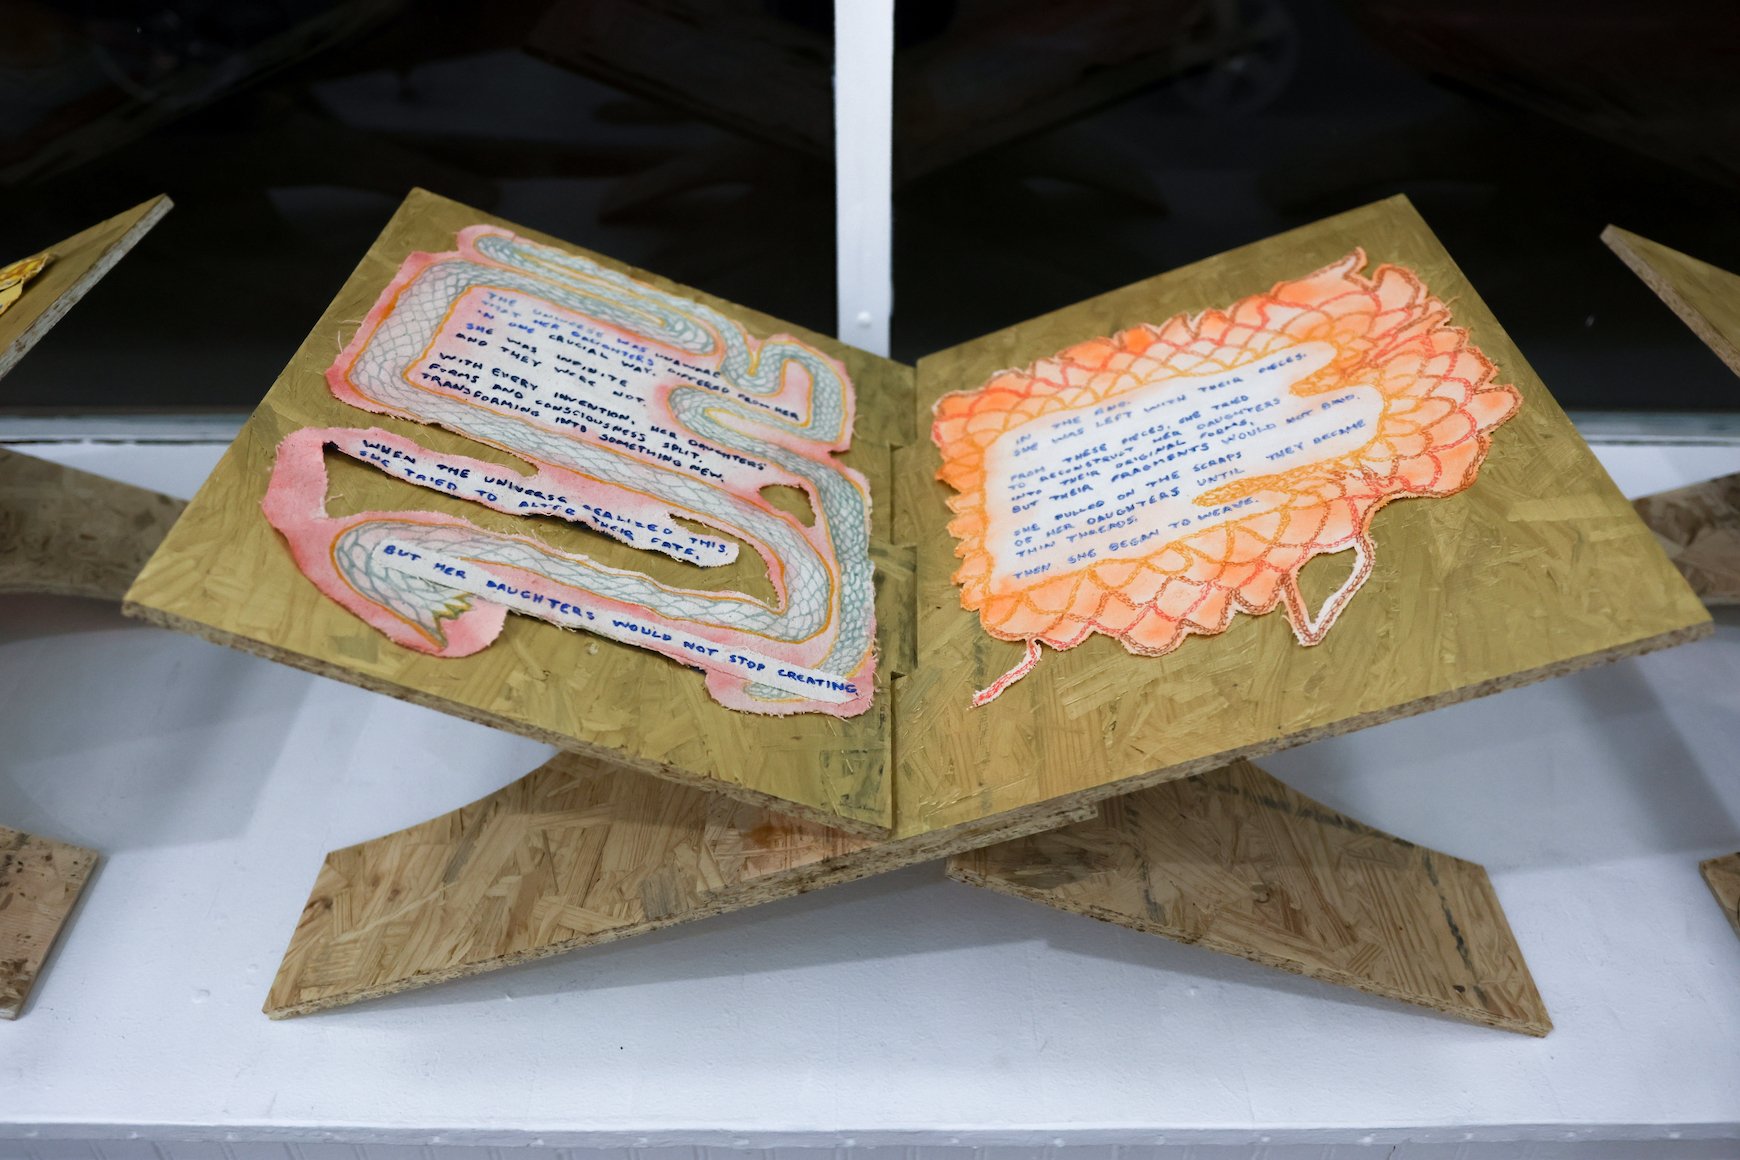 THE UNIVERSE WAS UNAWARE
THAT HER DAUGHTERS DIFFERED FROM HER
IN ONE CRUCIAL WAY.
SHE WAS INFINITE
AND THEY WERE NOT.
WITH EVERY INVENTION, HER DAUGHTERS'
FORMS AND CONSCIOUSNESS SPLIT,
TRANSFORMING INTO SOMETHING NEW.
WHEN THE UNIVERSE REALIZED THIS,
SHE TRIED TO ALTER THEIR FATE,
BUT HER DAUGHTERS WOULD NOT STOP CREATING.
IN THE END,
SHE WAS LEFT WITH THEIR PIECES.
FROM THESE PIECES, SHE TRIED
TO RECONSTRUCT HER DAUGHTERS
INTO THEIR ORIGINAL FORMS,
BUT THEIR FRAGMENTS WOULD NOT BIND.
SHE PULLED ON THE SCRAPS
OF HER DAUGHTERS UNTIL THEY BECAME
THIN THREADS.
THEN SHE BEGAN TO WEAVE.